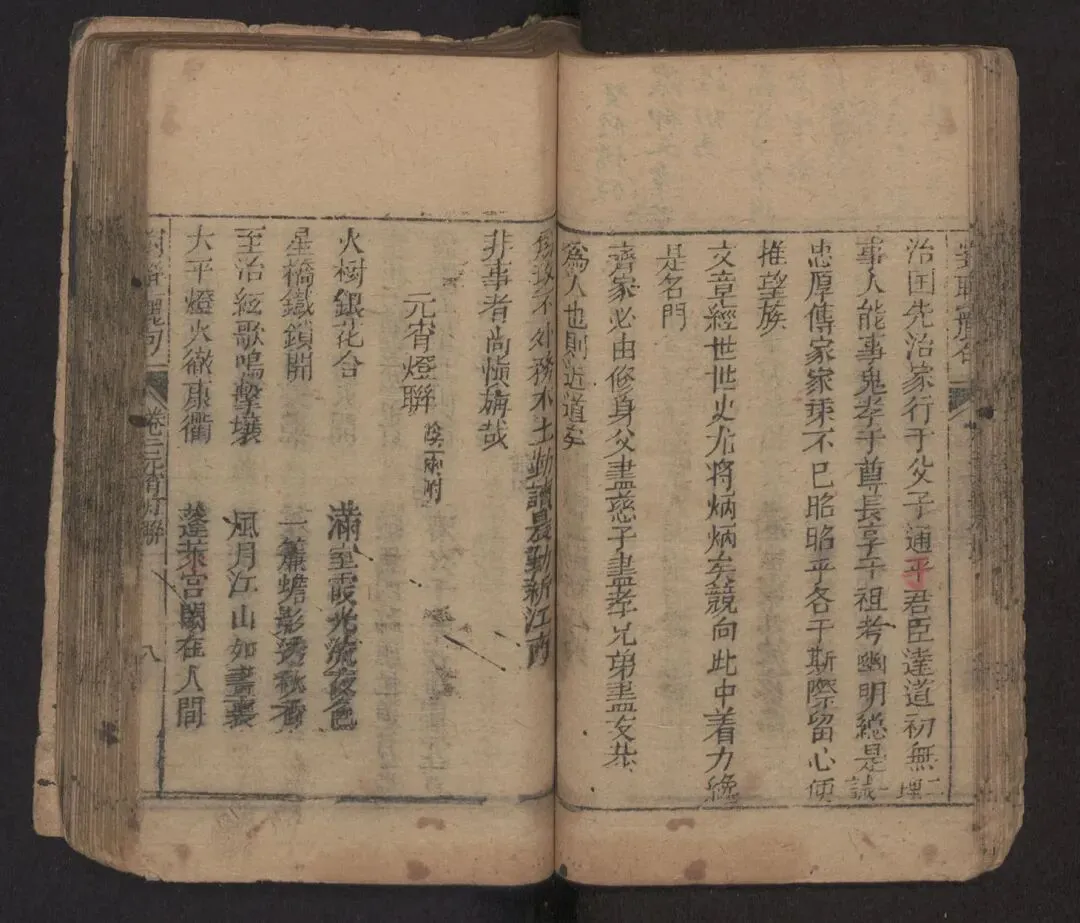 治囯先治家行于父子通乎君臣達道初無二理
事人能事鬼孝于尊長享于祖考幽明緫是一誠
忠厚傳家家乘不已昭昭乎各于斯際留心便
推望族
文章經世世史尤將炳炳矣競向此中着力纔
是名門
齊家必由修身父盡慈子盡孝兄弟盡友恭
爲人也則近道矣
不外務本士勤讀農勤新江南
非事者尚愼旃哉
元宵燈聯
火樹銀花合 滿 霞光流夜色
星橋鐵鎖開 一簾蟾影透秋香
至治絃歌鳴擊壤 風月江山如畫裏
大平燈火徹康衢 蓬萊宮闕在人間
卷三元宵灯聯 八